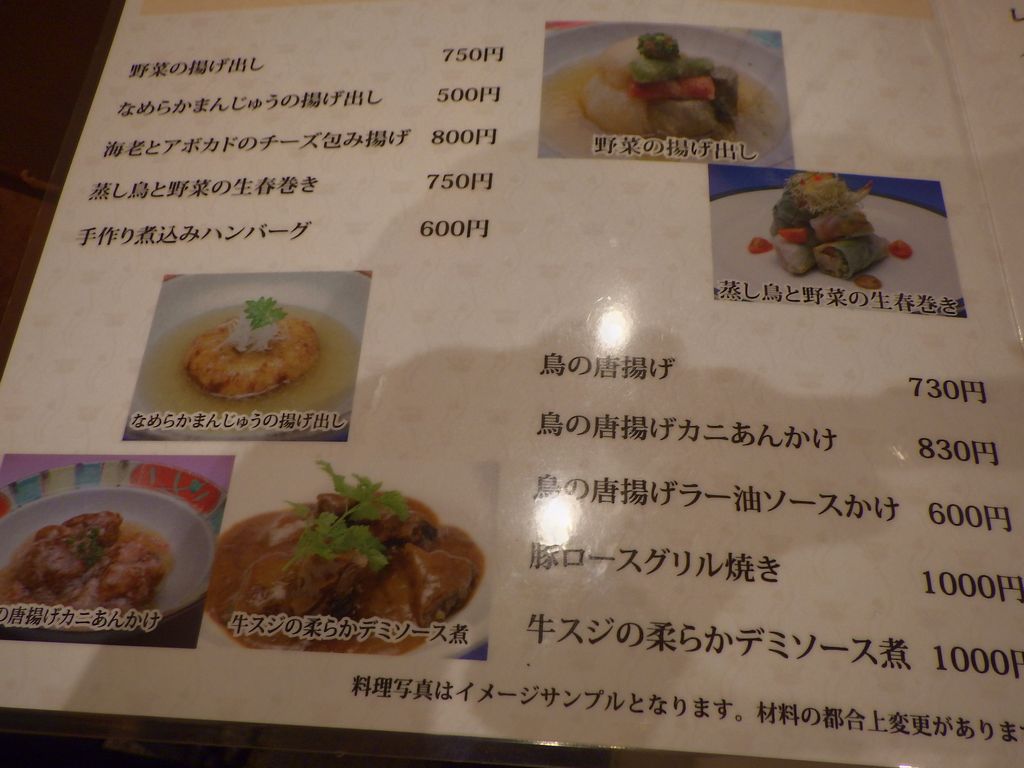 野菜の揚げ出し 750円
なめらかまんじゅうの揚げ出し 500円
海老とアボカドのチーズ包み揚げ 800円
蒸し鳥と野菜の生春巻き 750円
手作り煮込みハンバーグ 600円
野菜の揚げ出し
蒸し鳥と野菜の生春巻き
なめらかまんじゅうの揚げ出し
の唐揚げカニあんかけ
牛スジの柔らかデミソース煮
鳥の唐揚げ 730円
鳥の唐揚げカニあんかけ 830円
鳥の唐揚げラー油ソースかけ 600円
豚ロースグリル焼き 1000円
牛スジの柔らかデミソース煮 1000円
料理写真はイメージサンプルとなります。材料の都合上変更がありま